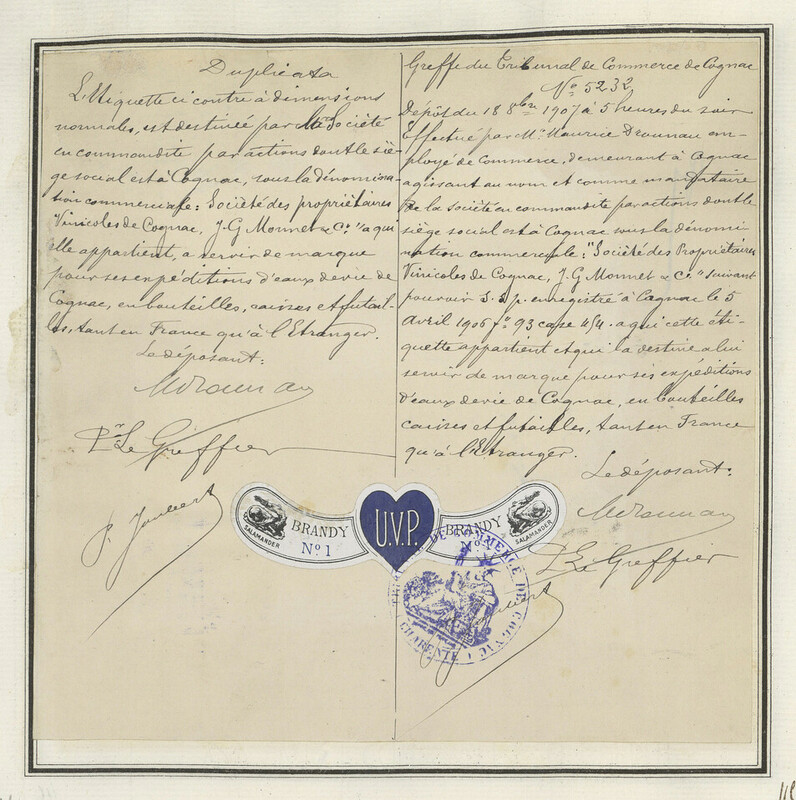 Duplicata
L'Etiquette ci contre à dimensions
normales, est destinée par la Société
en commandite par actions dont le siè-
ge social est à Cognac, sous la dénomina-
tion commerciale: Société des propriétaires
Vinicoles de Cognac, J-G Monnet & Cº. "a qui
elle appartient, a servir de marque
pour ses expéditions d'eaux de vie de
Cognac, en bouteilles, caisses et futail-
les, tant en France qu'à l'Etranger.
Le déposant:
Pr Le Greffier
Greffe du Tribunal de Commerce de Cognac
Nº 5232
Dépôt du 18 8bre 1907 à 5 heures du soir
Effectué par Mr. Maurice Drounau em-
ployé de Commerce, demeurant à Cognac
agissant au nom et comme mandataire
de la Société en commandite par actions dont le
siège social est à Cognac sous la dénomi-
nation commerciale: "Société des Propriétaires
Vinicoles de Cognac, J.G Monnet & Cº." suivant
pouvoir S.S.p. enregistré à Cognac le 5
Avril 1906 fº 93 case 454. a qui cette éti-
quette appartient et qui la destine a lui
servir de marque pour ses expéditions
d'eaux de vie de Cognac, en bouteilles
caisses et futailles, tant en France
qu'à l'Etranger.
Le déposant:
Pr Le Greffier
P. Joubert
SALAMANDER
BRANDY
Nº 1
U.V.P.
BRANDY
Nº
SALAMANDER
TRIBUNAL DE COMMERCE DE COGNAC
CHARENTE